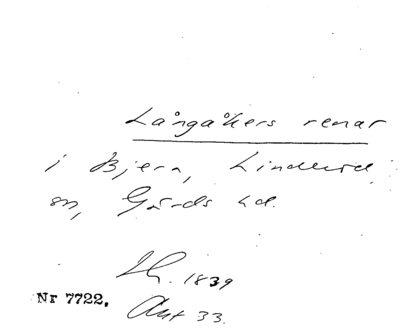 Långåkers renar
i Bjera, Linderöd
sn, Gärds hd.
1839
Nr 7722.
Ant 33.